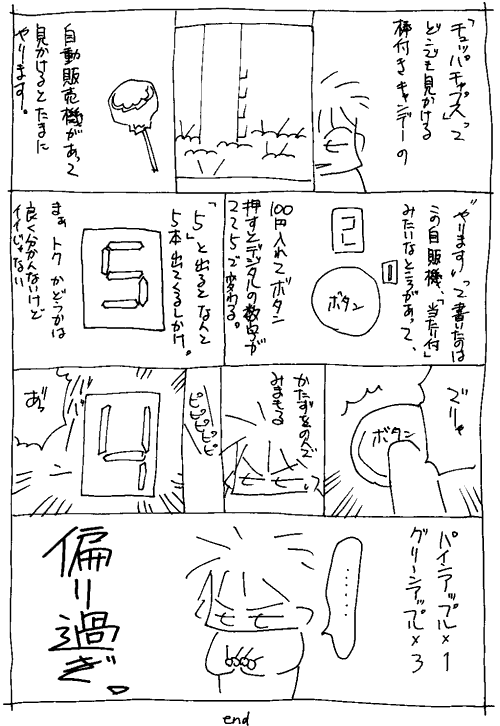 「チュッパチャプス」って
どこでも見かける
棒付きキャンデーの
自動販売機があって
見かけるとたまに
やります。
"やります"って書いたのは
この自販機、「当たり付」
みたいなところがあって、
ボタン
100円入れてボタン
押すとデジタルの数字が
1〜5で変わる。
「5」と出るとなんと
5本出てくるしかけ。
5
まぁ トクかどうかは
良く分かんないけど
イイじゃない
ズリャ
ボタン
かたずをのんで
みまもる
ピピピピピ
4
あっ
パイナップル×1
グリーンアップル×3
……
偏り過ぎ。
end